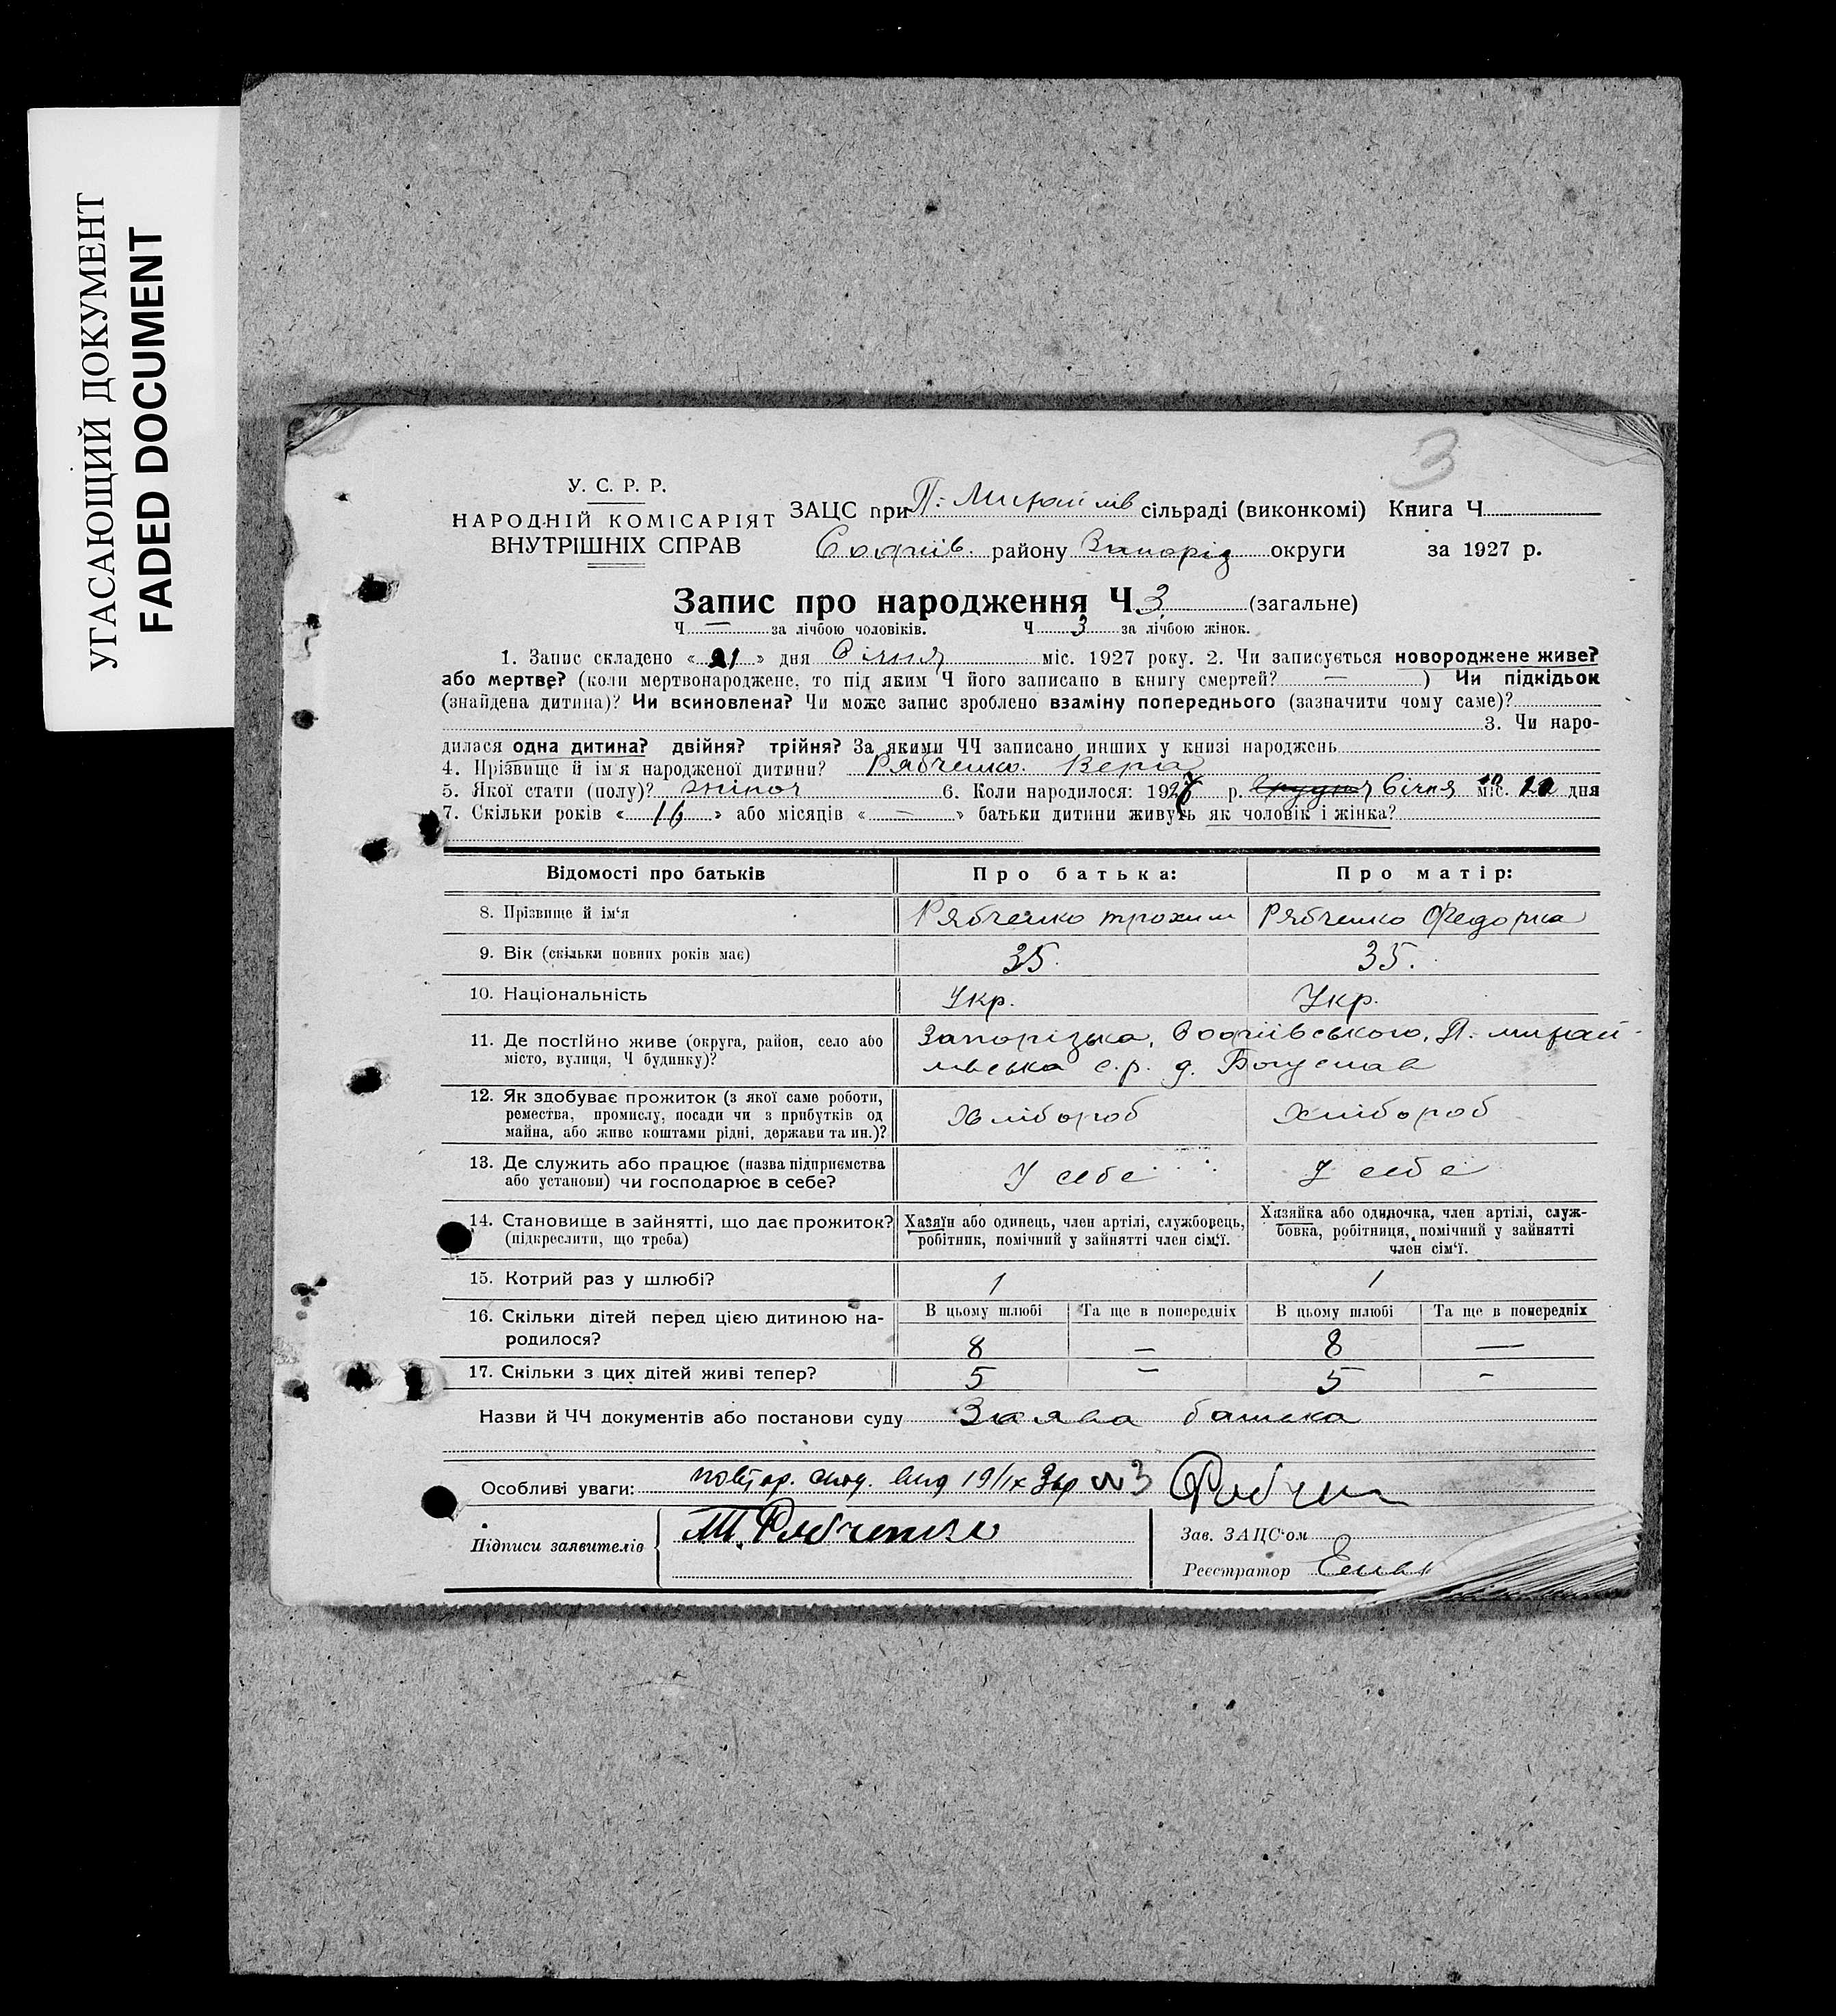 УГАСАЮЩИЙ ДОКУМЕНТ
FADED DOCUMENT
3
У. С. Р. Р.
НАРОДНІЙ КОМІСАРІЯТ
ВНУТРІШНІХ СПРАВ
ЗАЦС при П. Михайлів сільраді (виконкомі) Книга Ч.
Софіїв. району Запоріз округи за 1927 р.
Запис про народження Ч. 3 (загальне)
Ч. — за лічбою чоловіків. Ч. 3 за лічбою жінок.
1. Запис складено «21» дня Січня міс. 1927 року. 2. Чи записується новороджене живе?
або мертве? (коли мертвонароджене, то під яким Ч його записано в книгу смертей? — ) Чи підкідьок
(знайдена дитина)? Чи всиновлена? Чи може запис зроблено взаміну попереднього (зазначити чому саме)?
3. Чи наро-
дилася одна дитина? двійня? трійня? За якими ЧЧ записано инших у книзі народжень
4. Прізвище й ім'я народженої дитини? Рябченко Вера
5. Якої стати (полу)? жіноч 6. Коли народилося: 1927 р. грудня Січня міс. дня
7. Скільки років «16» або місяців «—» батьки дитини живуть як чоловік і жінка?
Відомості про батьків Про батька: Про матір:
8. Прізвище й ім'я Рябченко Трохим Рябченко Федорка
9. Вік (скільки повних років має) 35. 35.
10. Національність Укр. Укр.
11. Де постійно живе (округа, район, село або місто, вулиця, Ч будинку)? Запорізька, Софіївського, П. михай-
лівська с.р. д. Богуслав
12. Як здобуває прожиток (з якої саме роботи, ремества, промислу, посади чи з прибутків од майна, або живе коштами рідні, держави та ин.)? Хлібороб хлібороб
13. Де служить або працює (назва підприємства або установи) чи господарює в себе? У себе У себе
14. Становище в зайнятті, що дає прожиток? (підкреслити, що треба) Хазяїн або одинець, член артілі, службовець, робітник, помічний у зайнятті член сім'ї. Хазяйка або одиночка, член артілі, служ-
бовка, робітниця, помічний у зайнятті член сім'ї.
15. Котрий раз у шлюбі? 1 1
В цьому шлюбі Та ще в попередніх В цьому шлюбі Та ще в попередніх
16. Скільки дітей перед цією дитиною на-
родилося? 8 — 8 —
17. Скільки з цих дітей живі тепер? 5 — 5 -
Назви й ЧЧ документів або постанови суду Заява батька
Особливі уваги: повтор. 19/IX №3
Підписи заявителів Т. Рябченко
Зав. ЗАЦС'ом
Реєстратор